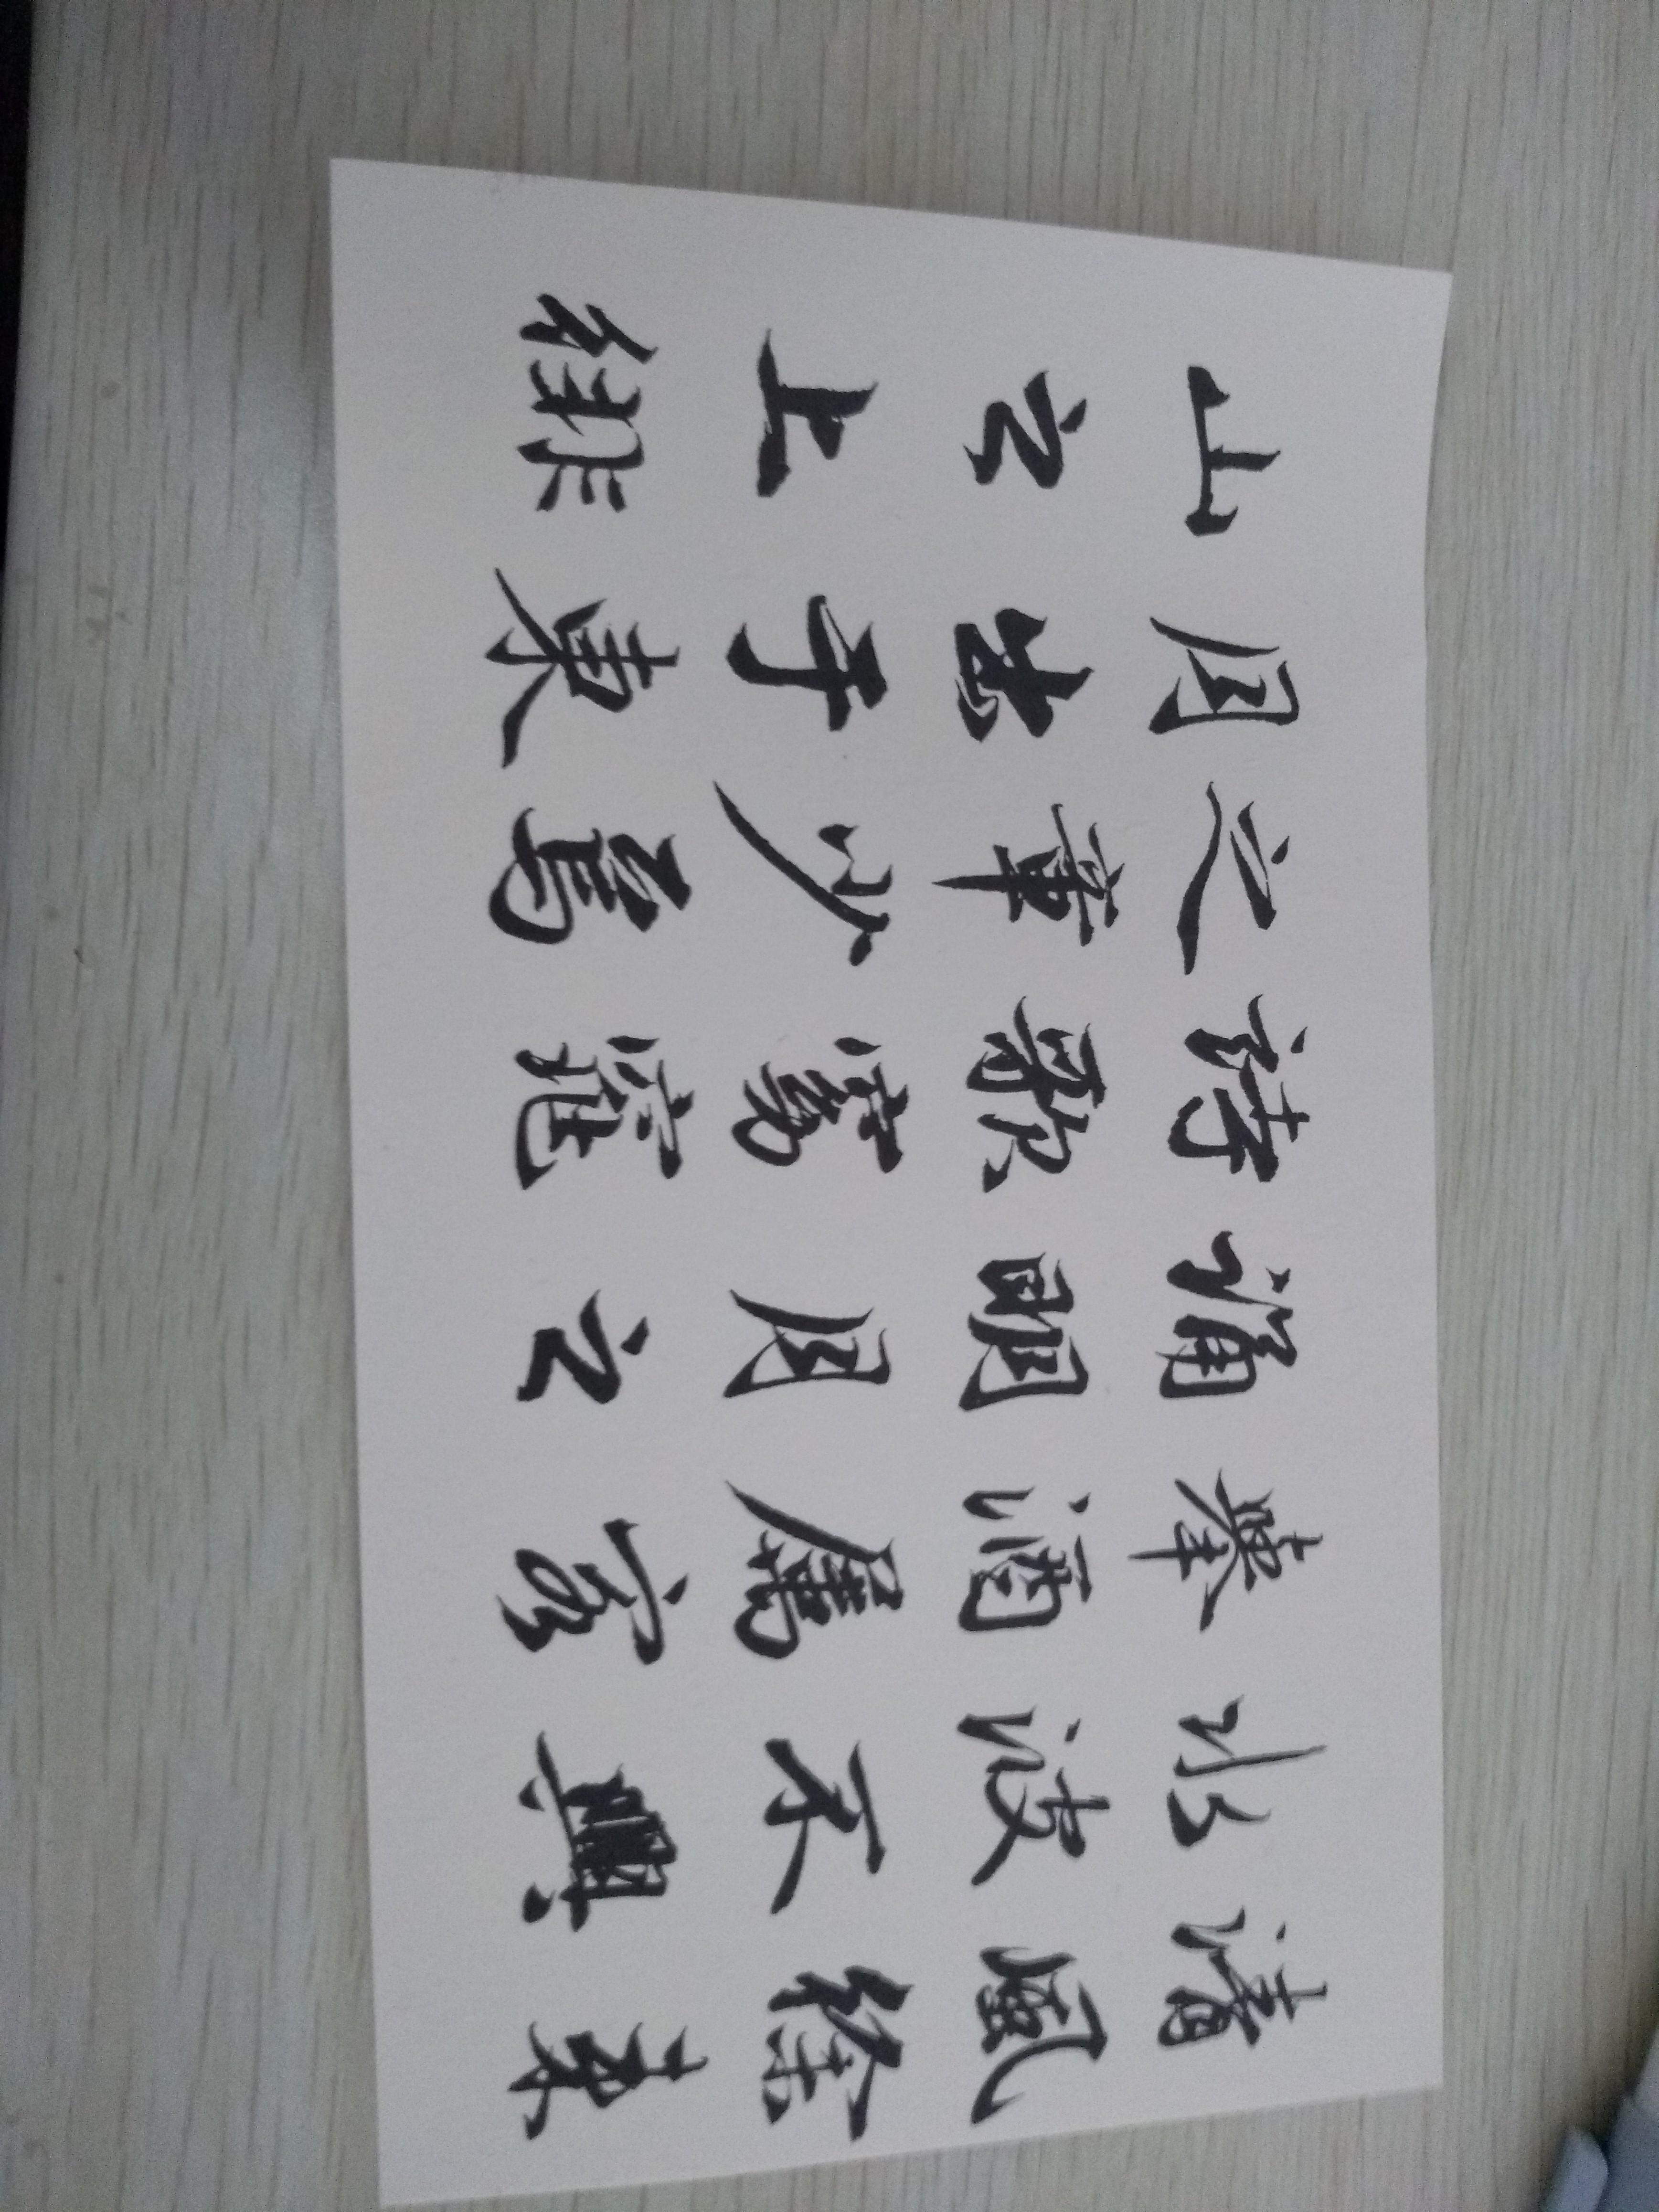 清風徐來
水波不興
舉酒屬客
誦明月之
詩歌窈窕
之章少焉
月出于東
山之上徘